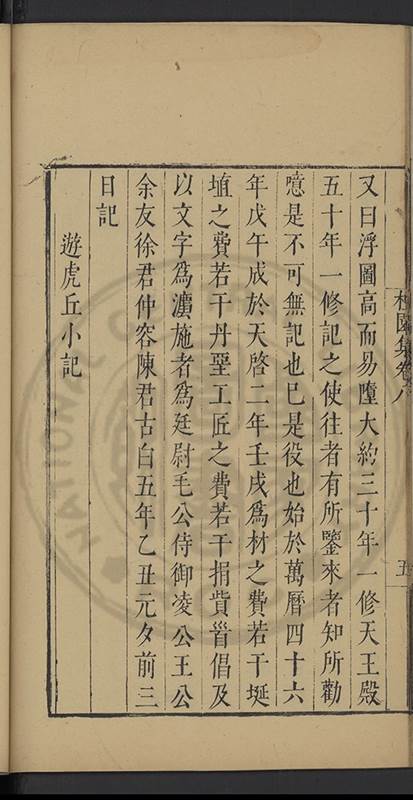 又曰浮圖高而易墮大約三十年一修天王殿
五十年一修記之使往者有所鑒來者知所勸
噫是不可無記也已是役也始於萬曆四十六
年戊午成於天啓二年壬戌為材之費若干埏
埴之費若干丹堊工匠之費若干捐貲首倡及
以文字為瀆施者為廷尉毛公侍御凌公王公
余友徐君仲容陳君古白五年乙丑元夕前三
日記
遊虎丘小記
園集卷八
五